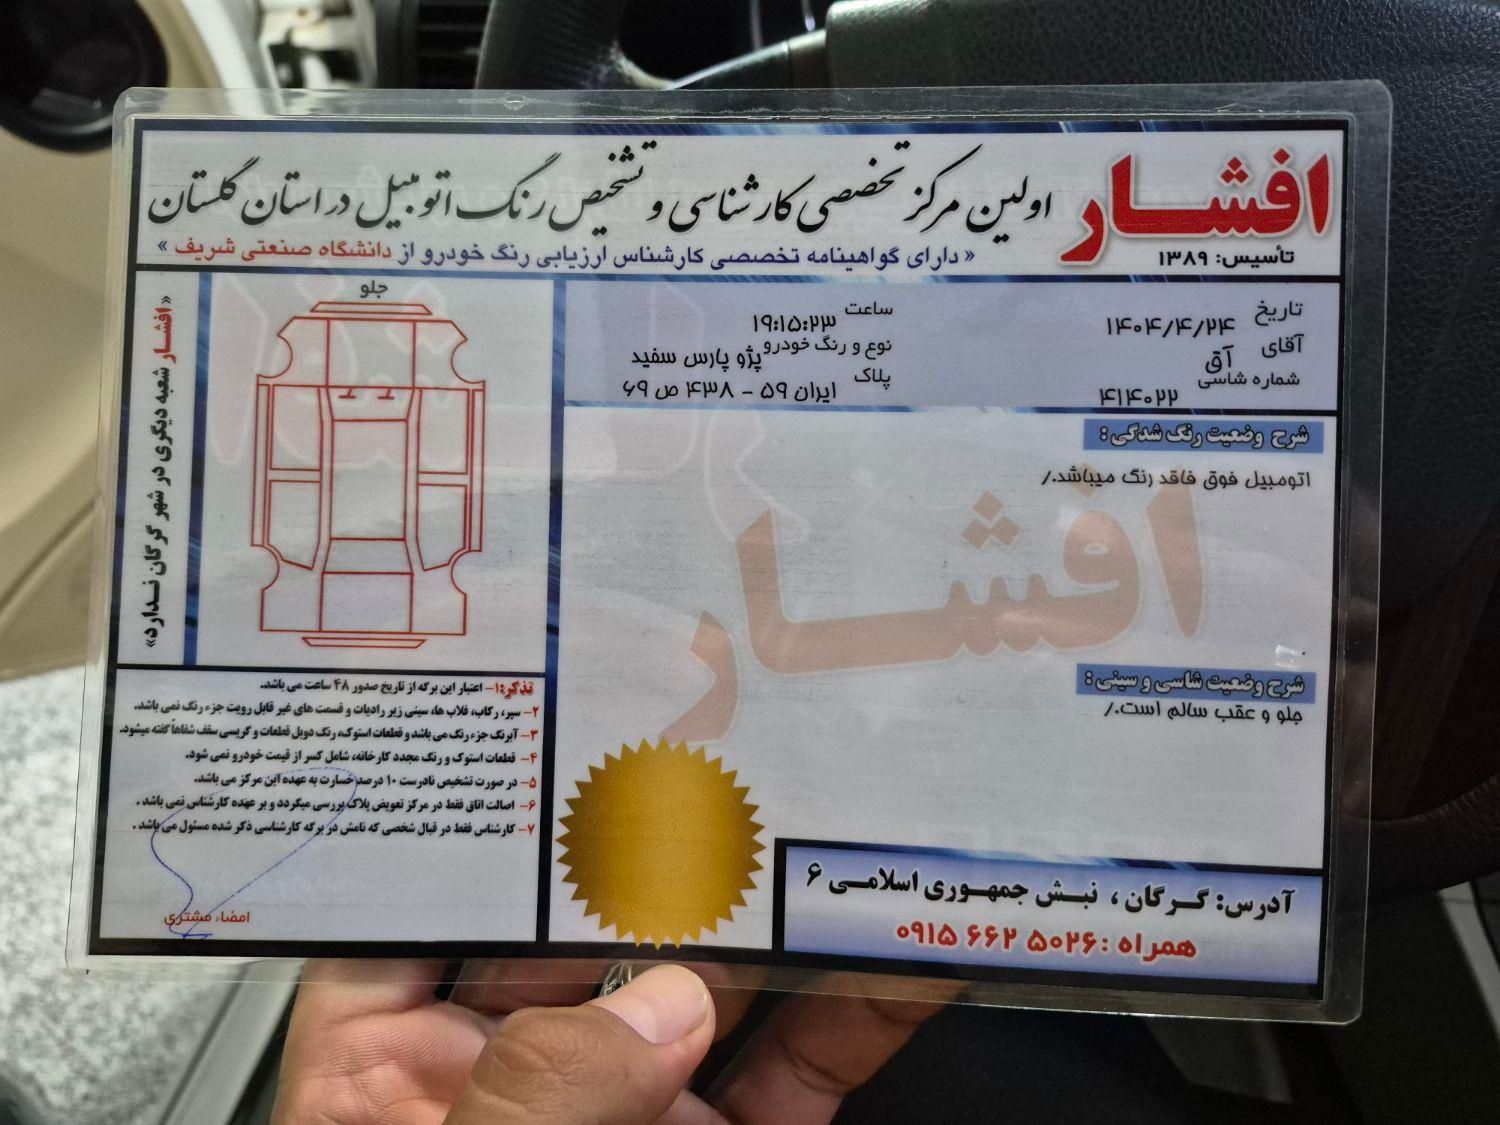 افشار
اولین مرکز تخصصی کارشناسی و تشخیص رنگ اتومبیل در استان گلستان
تأسیس: ۱۳۸۹
« دارای گواهینامه تخصصی کارشناس ارزیابی رنگ خودرو از دانشگاه صنعتی شریف »
تاریخ ۱۴۰۴/۴/۲۴
ساعت ۱۹:۱۵:۲۳
آقای آق
نوع و رنگ خودرو پژو پارس سفید
شماره شاسی ۴۱۴۰۲۲
پلاک ایران ۵۹ - ۴۳۸ ص ۶۹
شرح وضعیت رنگ شدگی :
اتومبیل فوق فاقد رنگ میباشد./
افشار
شرح وضعیت شاسی و سینی :
جلو و عقب سالم است./
جلو
«افشار شعبه دیگری در شهر گرگان نـدارد»
تذکر:۱- اعتبار این برگه از تاریخ صدور ۴۸ ساعت می باشد.
۲- سپر، رکاب، قلاب ها، سینی زیر رادیات و قسمت های غیر قابل رویت جزء رنگ نمی باشد.
۳- آبرنگ جزء رنگ می باشد و قطعات استوک، رنگ دوبل قطعات و گریسی سقف شفاهاً گفته میشود.
۴- قطعات استوک و رنگ مجدد کارخانه، شامل کسر از قیمت خودرو نمی شود.
۵- در صورت تشخیص نادرست ۱۰ درصد خسارت به عهده این مرکز می باشد.
۶- اصالت اتاق فقط در مرکز تعویض پلاک بررسی میگردد و بر عهده کارشناس نمی باشد .
۷- کارشناس فقط در قبال شخصی که نامش در برگه کارشناسی ذکر شده مسئول می باشد .
امضاء مشتری
آدرس: گـرگان ، نبـش جمهـوری اسلامـی ۶
همراه :۰۹۱۵ ۶۶۲ ۵۰۲۶